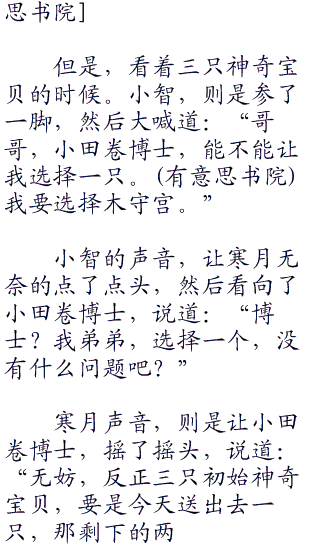 思书院]
但是，看着三只神奇宝
贝的时候。小智，则是参了
一脚，然后大喊道：“哥
哥，小田卷博士，能不能让
我选择一只。(有意思书院)
我要选择木守宫。”
小智的声音，让寒月无
奈的点了点头，然后看向了
小田卷博士，说道：“博
士？我弟弟，选择一个，没
有什么问题吧？”
寒月声音，则是让小田
卷博士，摇了摇头，说道：
“无妨，反正三只初始神奇
宝贝，要是今天送出去一
只，那剩下的两